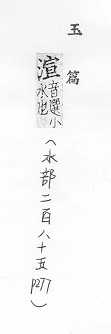 玉篇
渲音選小水也
(水部二百八十五 P277)